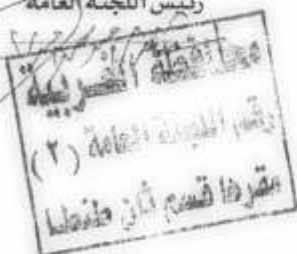 رئيس اللجنة العامة
محافظة الغربية
رقم اللجنة العامة (٢)
مقرها قسم ثان طنطا